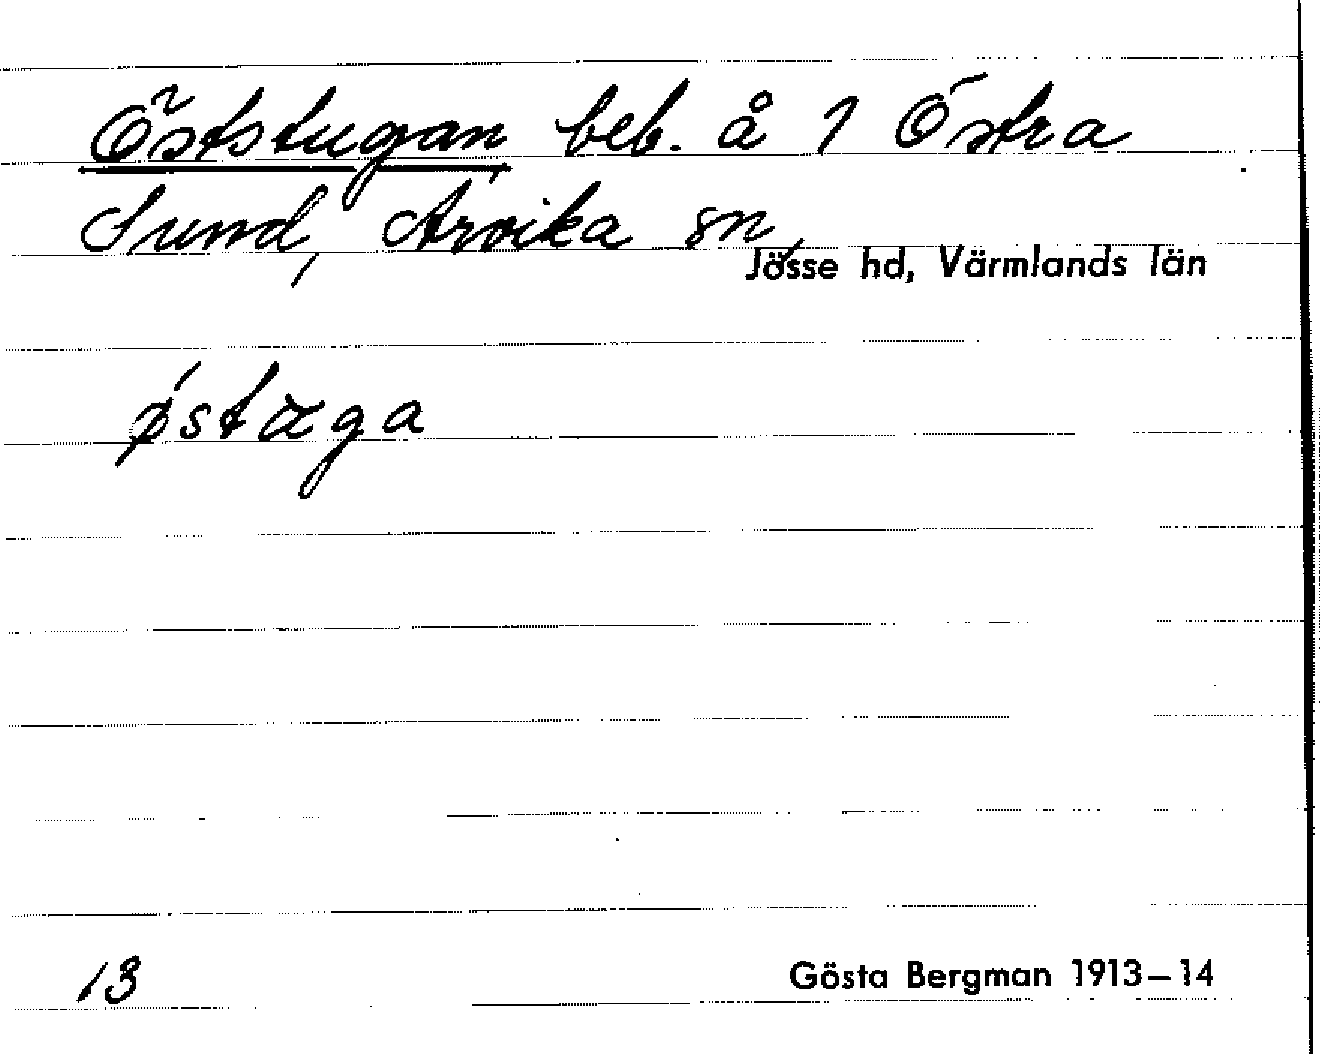 Öststugan beb. å 1 Östra
Sund, Arvika sn,
Jösse hd, Värmlands län
östæga
13
Gösta Bergman 1913–14